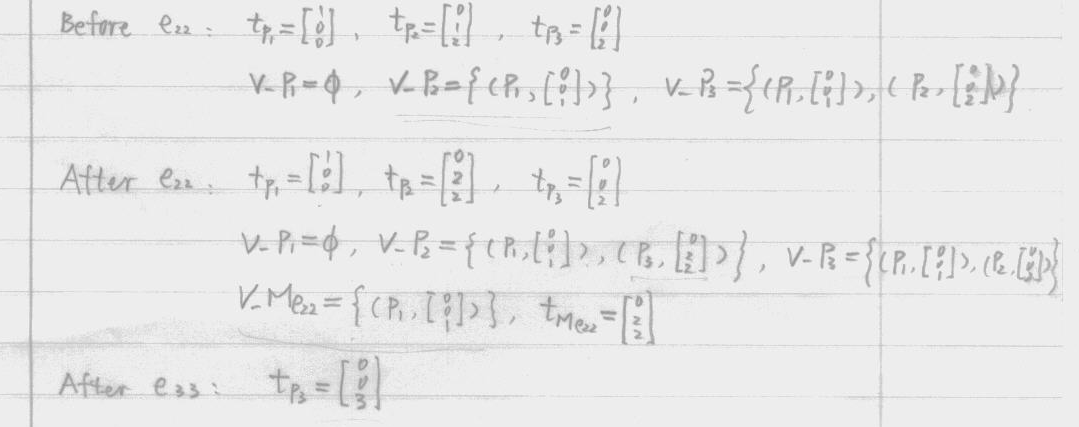 Before e₂₂: t_P₁ = [1 0 0], t_P₂ = [0 1 2], t_P₃ = [0 0 2]
V_P₁ = ϕ, V_P₂ = {(P₁, [0 0 1])}, V_P₃ = {(P₁, [0 0 1]), (P₂, [0 0 2])}
After e₂₂: t_P₁ = [1 0 0], t_P₂ = [0 2 2], t_P₃ = [0 0 2]
V_P₁ = ϕ, V_P₂ = {(P₁, [0 0 1]), (P₃, [0 2 2])}, V_P₃ = {(P₁, [0 0 1]), (P₂, [0 0 2])}
V_Me₂₂ = {(P₁, [0 0 1])}, t_Me₂₂ = [0 2 2]
After e₃₃: t_P₃ = [0 0 3]